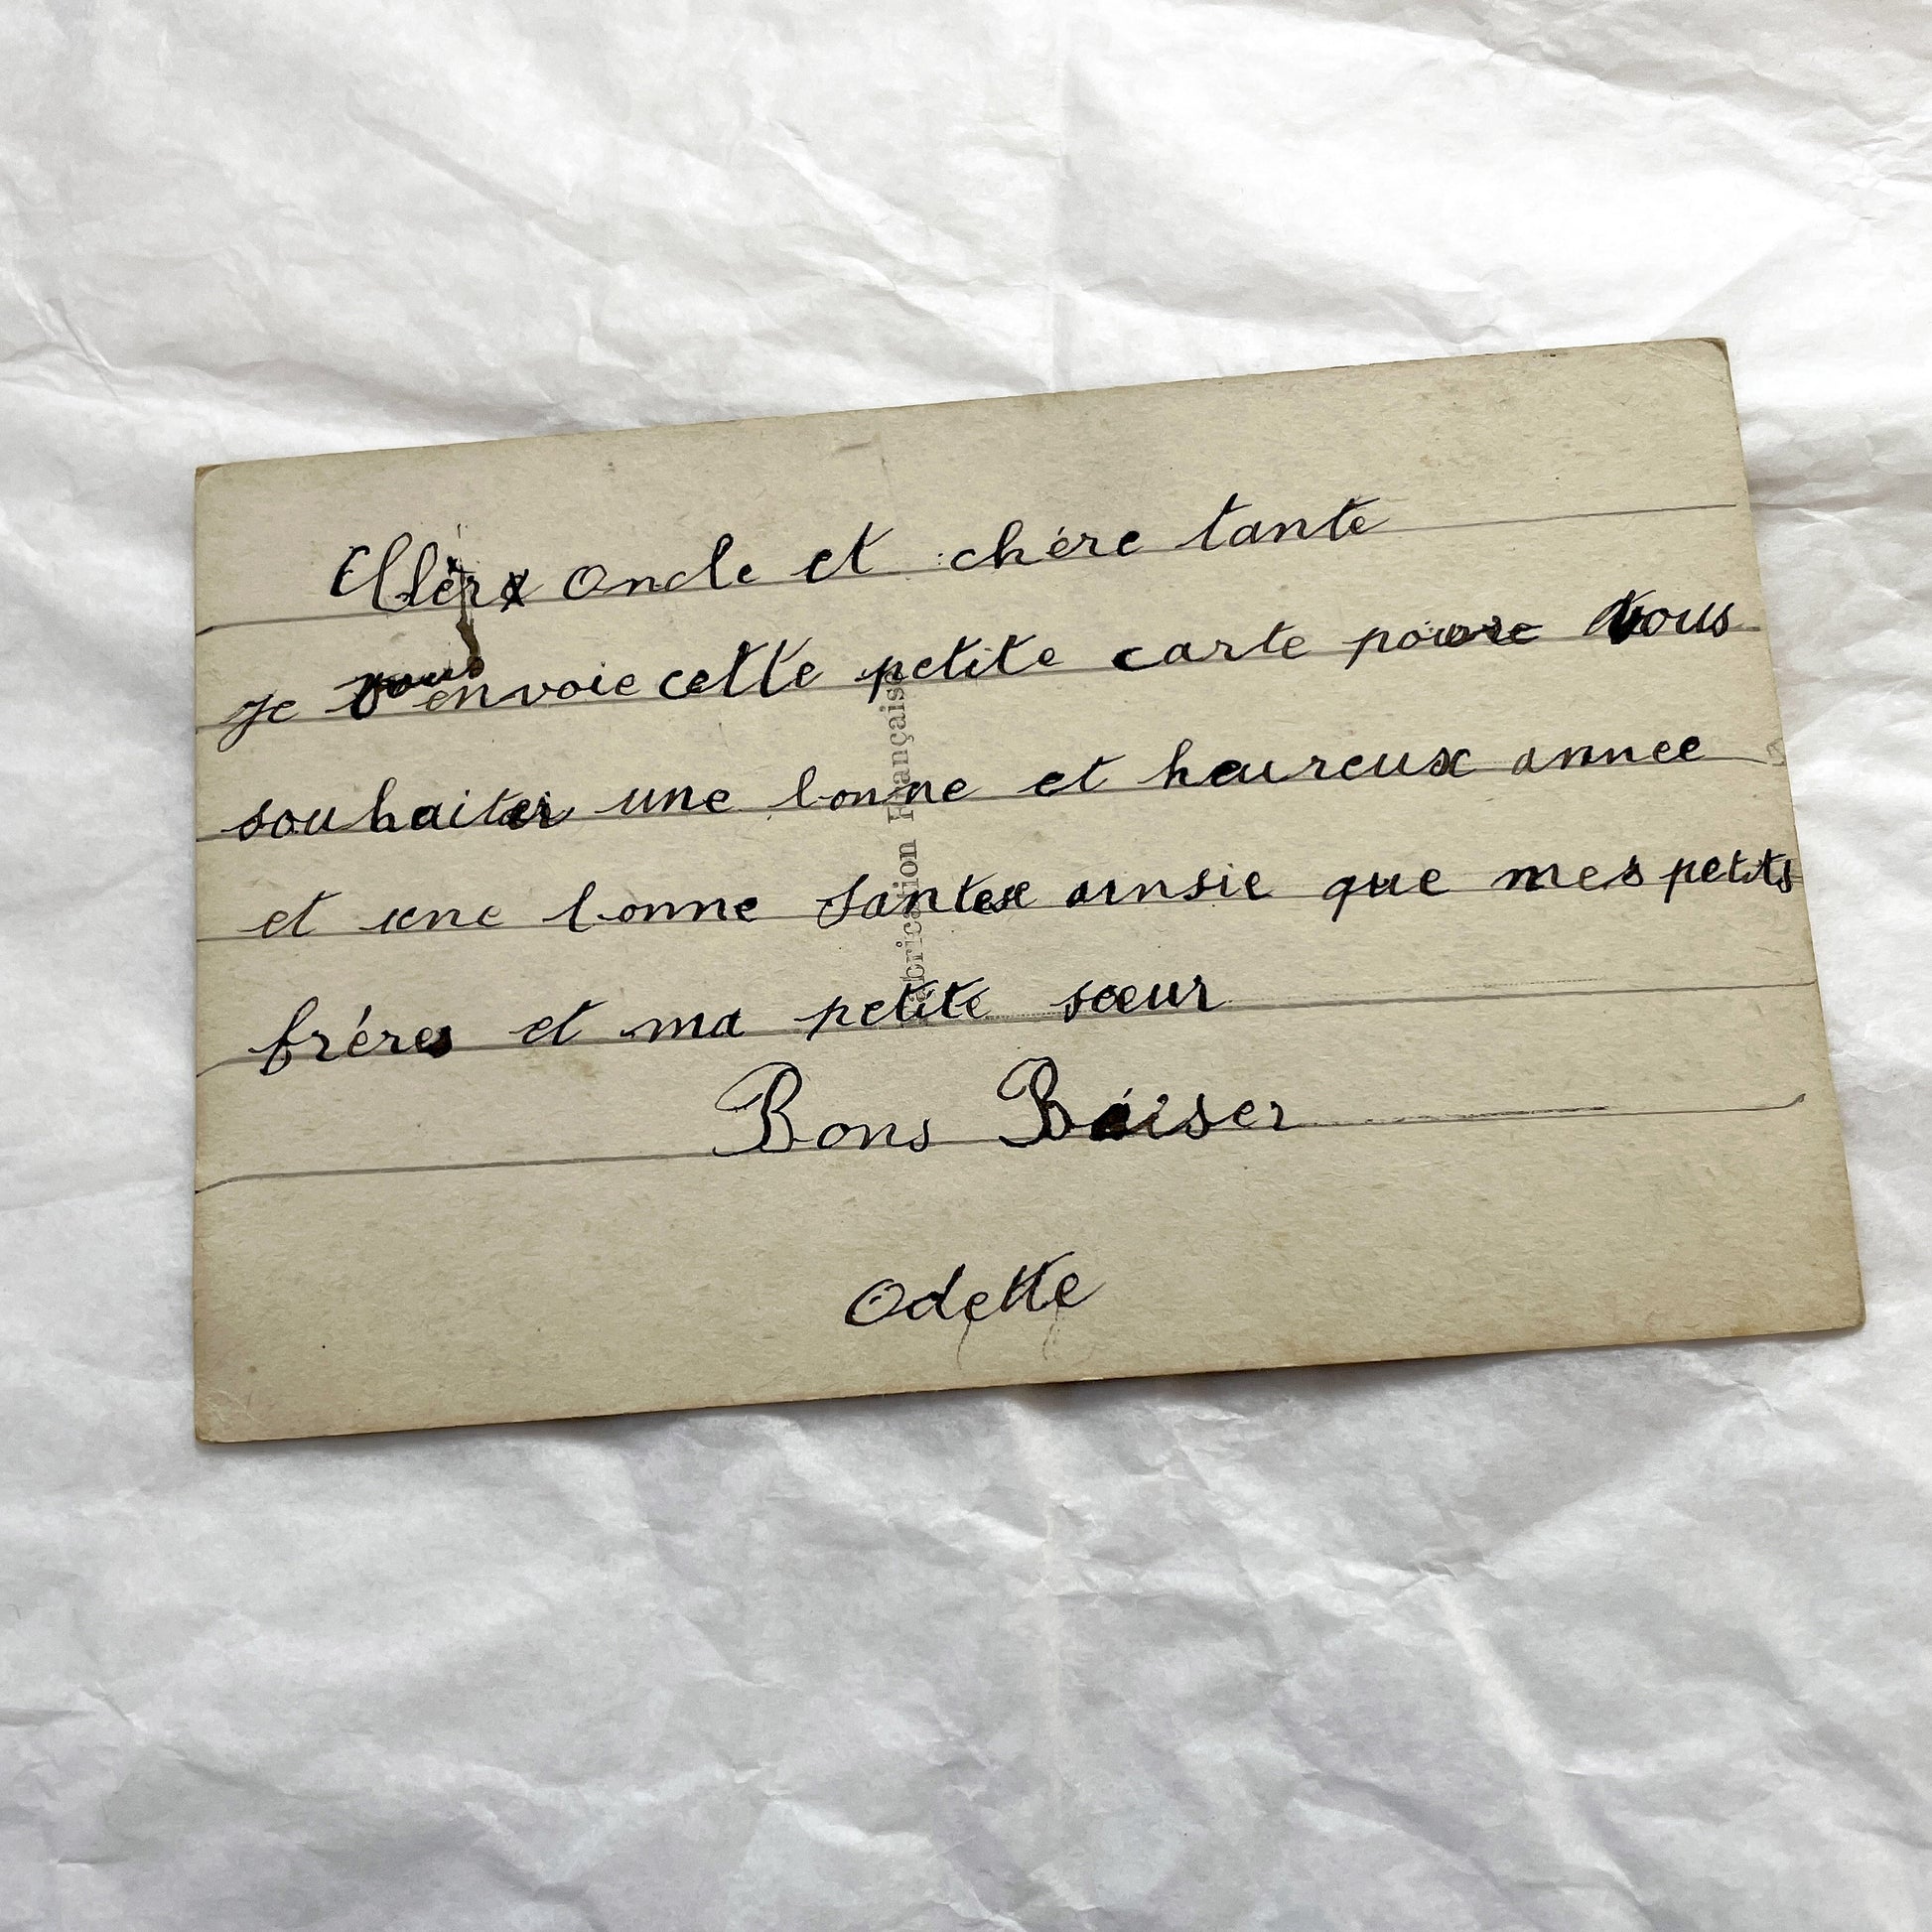 Chèr Oncle et chère tante
je vous envoie cette petite carte pour vous
souhaiter une bonne et heureux annee
et une bonne Santee ainsie que mes petits
frères et ma petite sœur
Bons Baiser
Odette
Fabrication Française